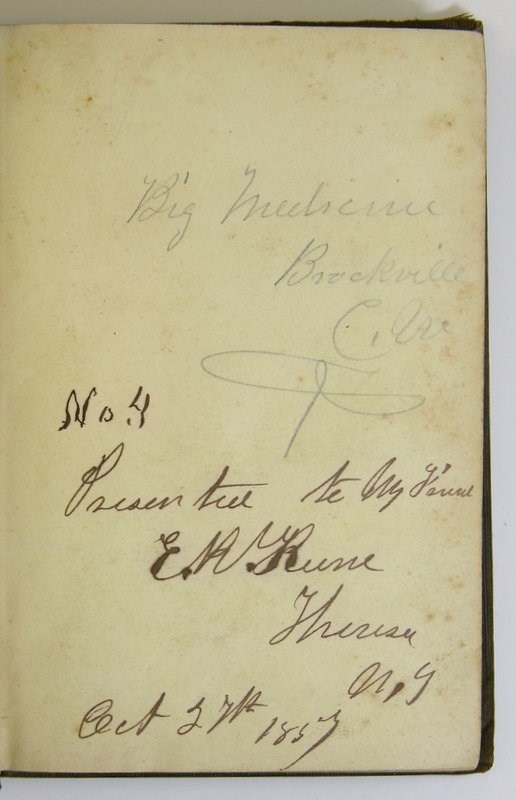 Big Medicine
Brockville
C.
No 4
Presented to My Friend
E. R. Keene
Theresa
N, Y
Oct 27th 1857